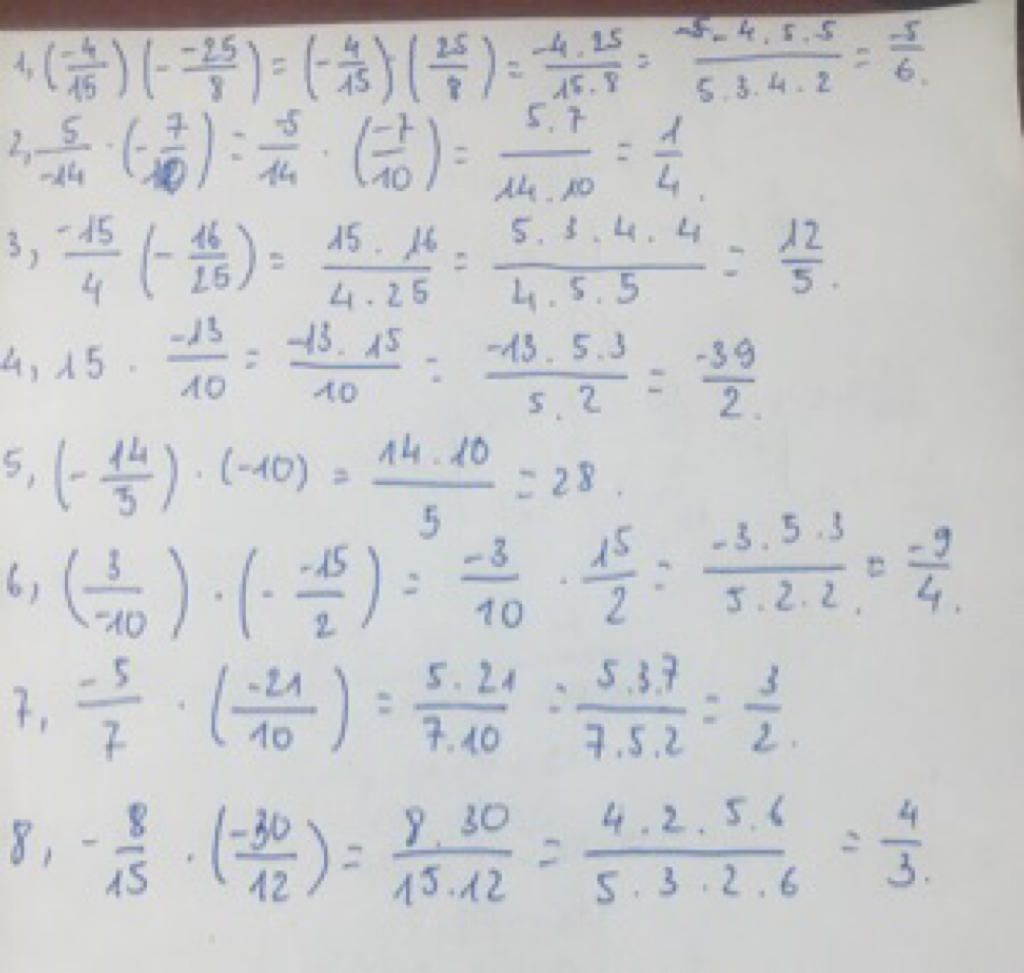 1, (-4/15) (- -25/8) = (-4/15) · (25/8) = -4.25/15.8 = -5-4.5.5/5.3.4.2 = -5/6.
2, 5/-14 · (-7/10) = -5/14 · (-7/10) = 5.7/14.10 = 1/4.
3, -15/4 (-16/25) = 15.16/4.25 = 5.3.4.4/4.5.5 = 12/5.
4, 15 · -13/10 = -13.15/10 = -13.5.3/5.2 = -39/2.
5, (-14/5) · (-10) = 14.10/5 = 28.
6, (3/-10) · (- -15/2) = -3/10 · 15/2 = -3.5.3/5.2.2. = -9/4.
7, -5/7 · (-21/10) = 5.21/7.10 = 5.3.7/7.5.2 = 3/2.
8, -8/15 · (-30/12) = 8.30/15.12 = 4.2.5.6/5.3.2.6 = 4/3.